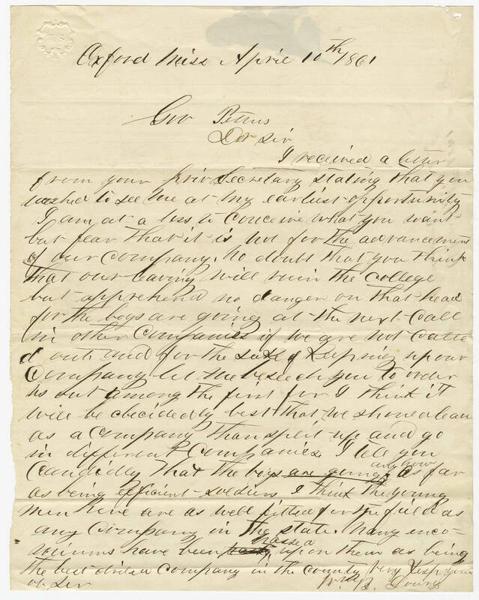 Oxford Miss April 10th 1861
Gov Pettus
Der Sir
I received a letter
from your priv. Secretary stating that you
wished to see me at my earliest opportunity
I am at a loss to conceive what you want
but fear that it is not for the advancement
of our company. No doubt that you think
that our leaving will ruin the college
but apprehend no danger on that head
for the boys are going at the next call
in other companies if we are not called
out and for the sake of keeping up our
Company let me beseech you to order
us out among the first for I think it
will be decidedly best that we should leave
as a company than split up and go
in different companies I tell you
candidly that the boys are going anyhow As far
as being efficient soldiers I think the young
men here are as well fitted for the field as
any company in the state. Many enco-
miums have been passed upon them as being
the best drilled company in the county Very Resp your
ob. Ser
Wm B. Lowry